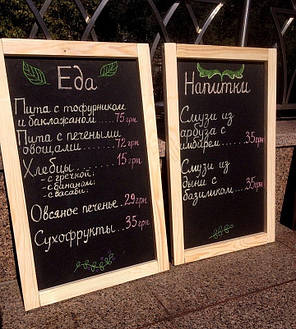 Еда
Пита с тофурником
и баклажаном. 75 грн
Пита с печеными
овощами 72 грн
Хлебцы 15 грн
- с гречкой
- с бананом
- с васаби
Овсяное печенье 29 грн
Сухофрукты 35 грн
Напитки
Смузи из
арбуза с
имбирем. 35 грн
Смузи из
дыни с 35 грн
базиликом